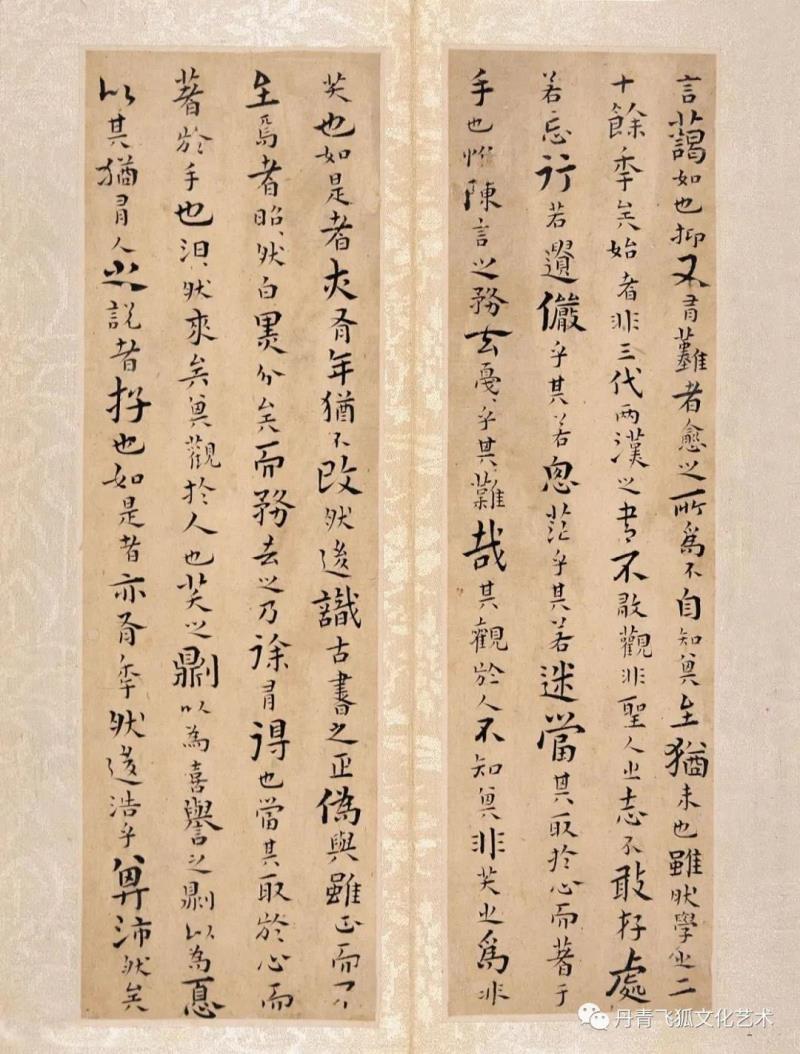 言藹如也抑又有難者愈之所爲不自知其至猶未也雖然學之二
十餘年矣始者非三代兩漢之書不敢觀非聖人之志不敢存處
若忘行若遺儼乎其若思茫乎其若迷當其取於心而著于
手也惟陳言之務去戛〻乎其難哉其觀於人不知其非笑之爲非
笑也如是者亦有年猶不改然後識古書之正偽與雖正而不
至焉者昭〻然白黑分矣而務去之乃徐有得也當其取於心而
著於手也汩〻然來矣其觀於人也笑之則以為喜譽之則以為憂
以其猶有人之說者存也如是者亦有年然後浩乎其沛然矣
丹青飞狐文化艺术